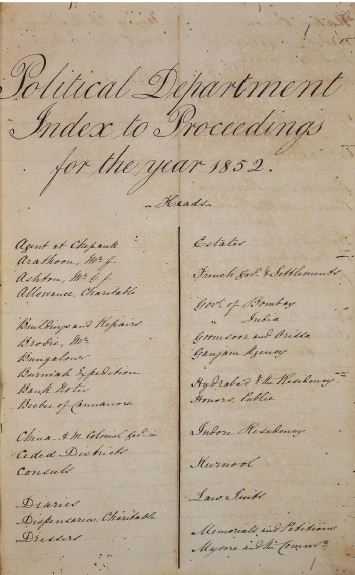 Political Department
Index to Proceedings
for the year 1852.
Heads
Agent at Chepauk
Arathoon, Mr. J.
Ashton, Mr. G. J.
Allowance, Charitable
Buildings and Repairs
Brodie, Mr.
Bungalows
Burmah Expedition
Bank Notes
Beebee of Cannanore
China H. M. Colonial Govt. in
Ceded Districts
Consuls
Diaries
Dispensaries, Charitable
Dressers
Estates
French Govt. & Settlements
Govt. of Bombay
" India
Goomsoor and Orissa
Ganjam Agency
Hydrabad & the Residency
Honors, Public
Indore Residency
Kurnool
Law Suits
Memorials and Petitions
Mysore and the Commr.